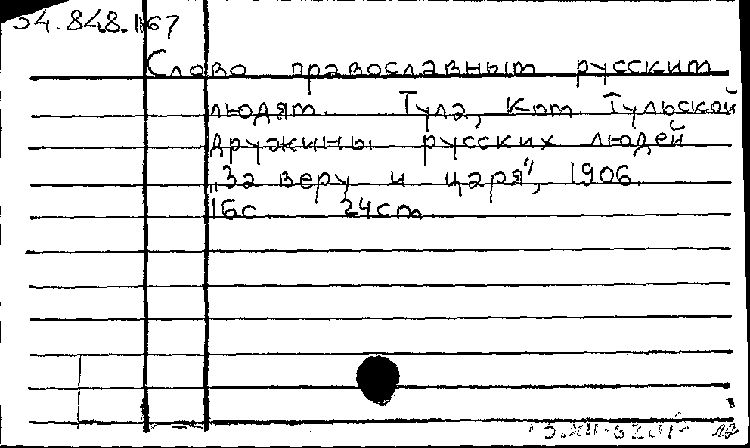 34.848.1167
Слово православным русским
людям. Тула, Ком. Тульской
Дружины русских людей
„За веру и царя", 1906.
16с. 24см.